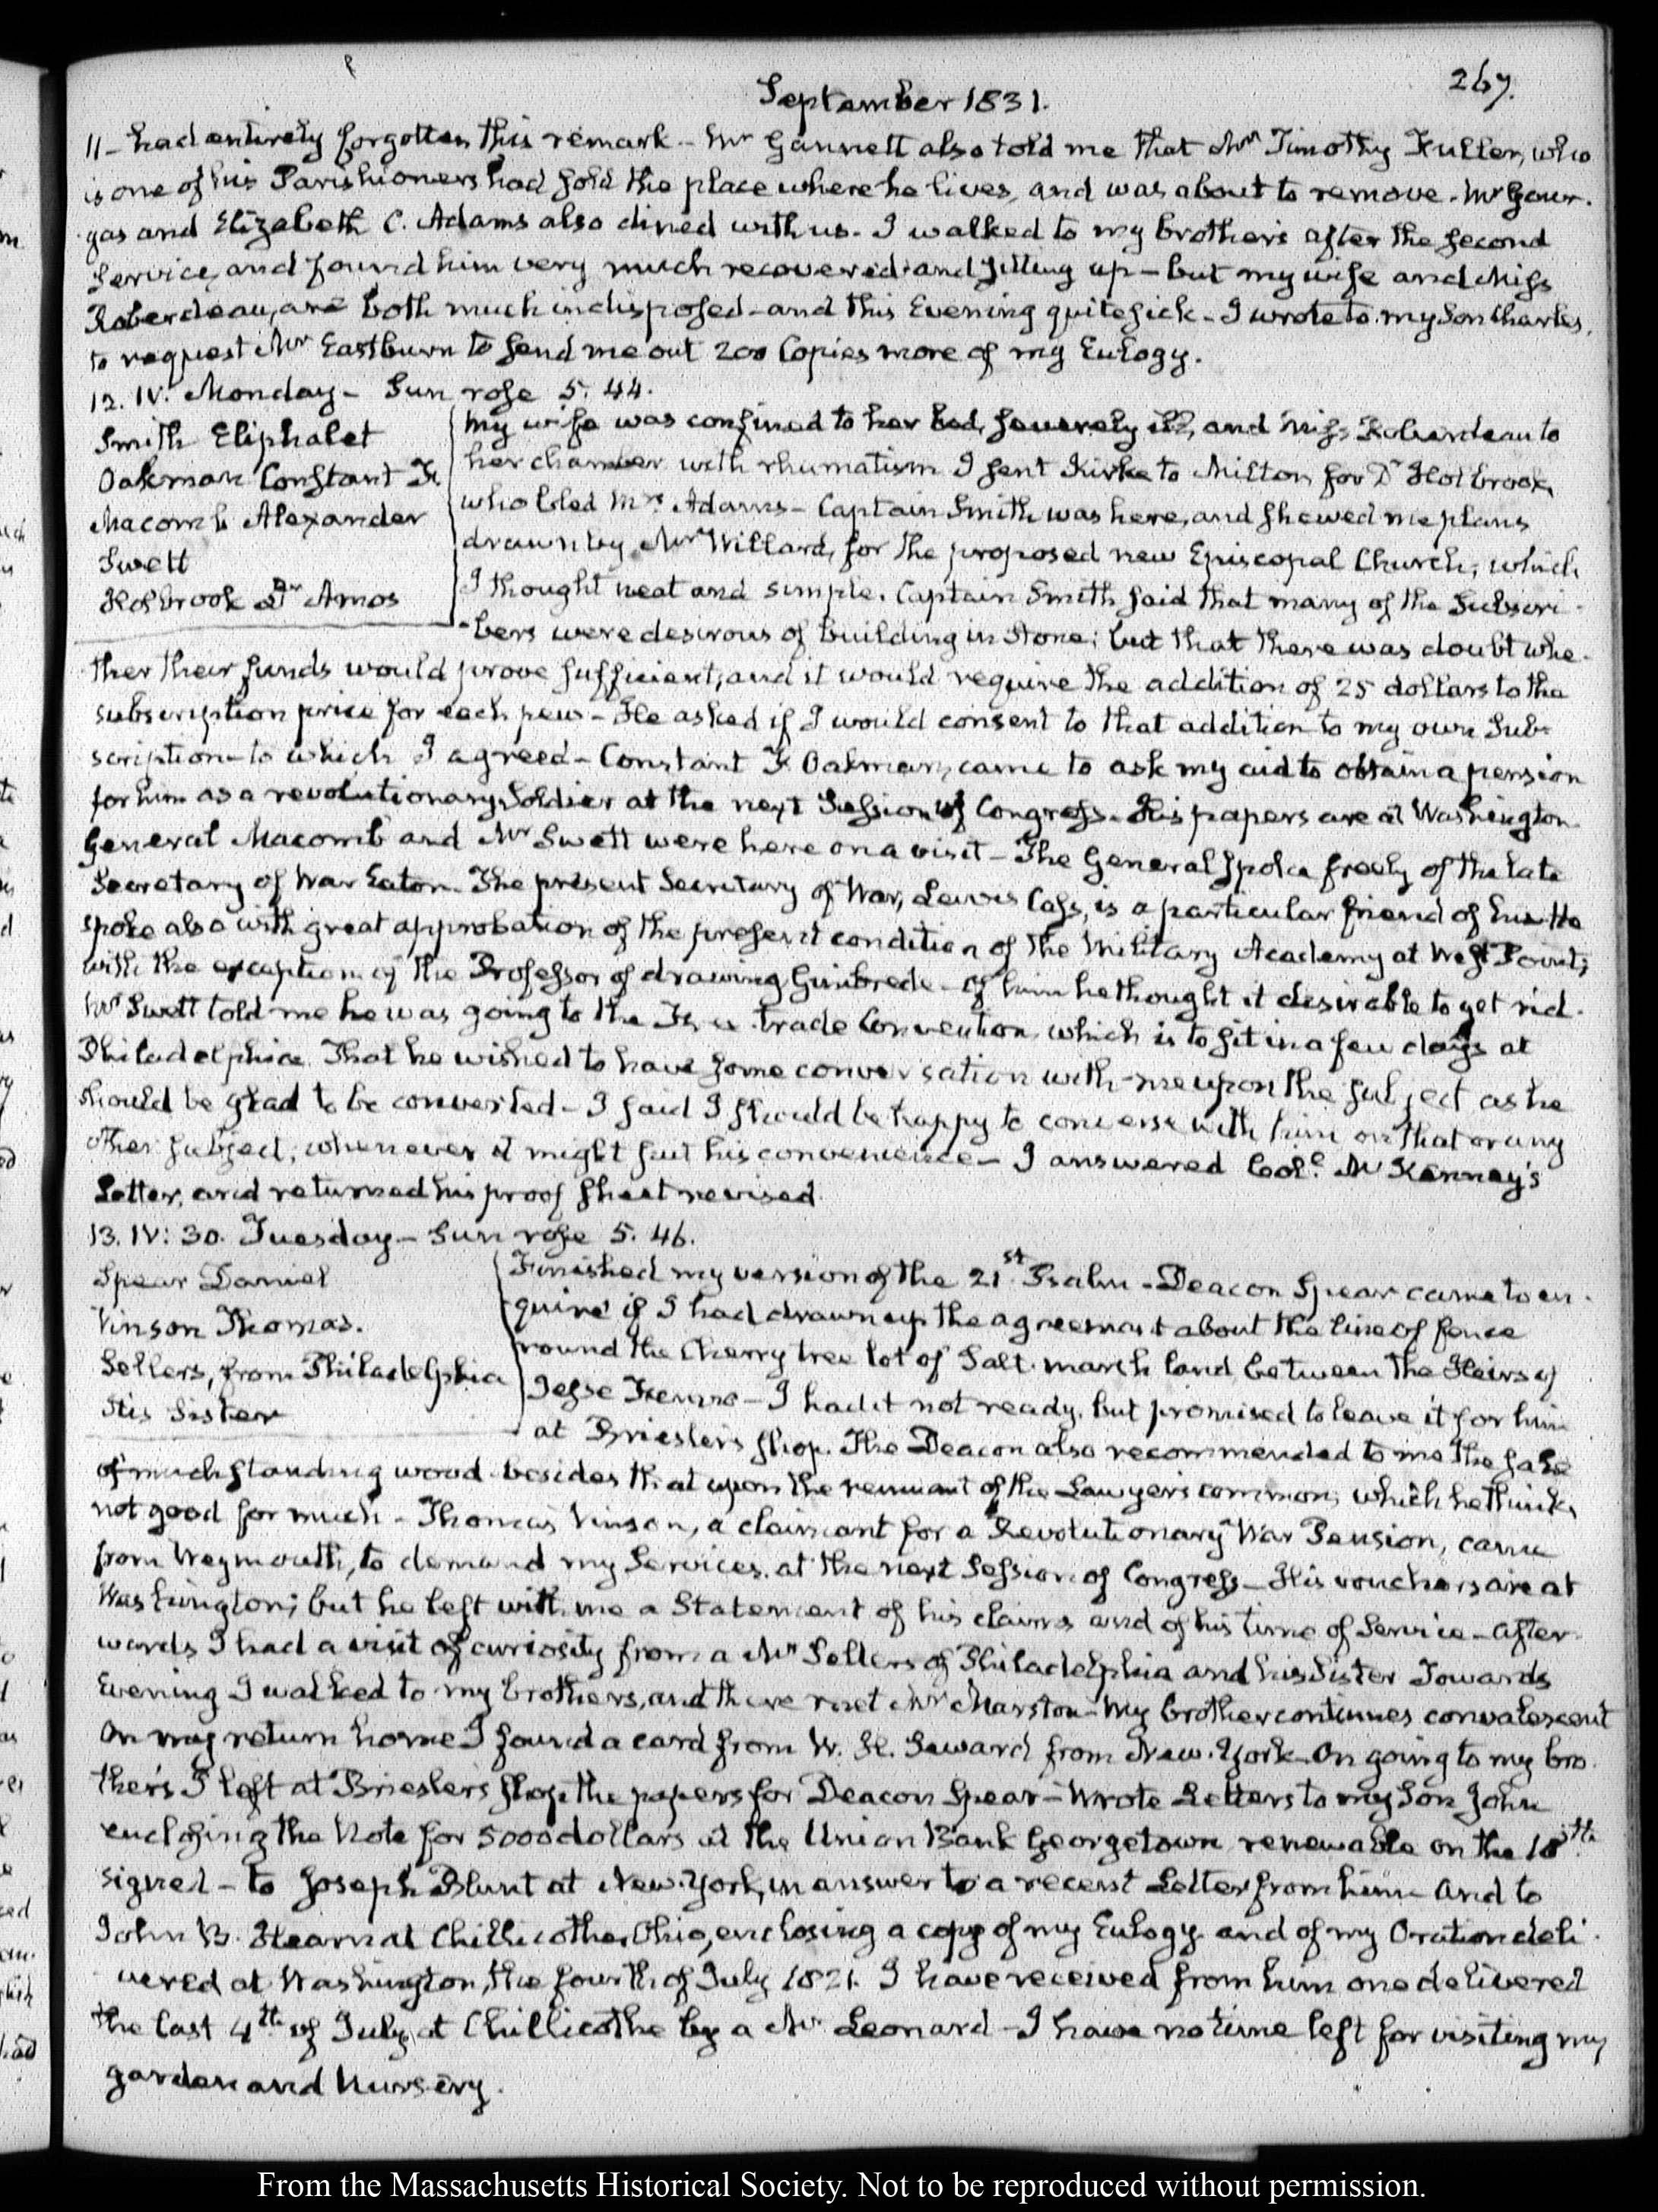 September 1831.
267.
11 - had entirely forgotten this remark - Mr Gannett also told me that Mr Timothy Fuller, who
is one of his Parishioners had sold the place where he lives, and was about to remove. Mr Gour-
gas and Elizabeth C. Adams also dined with us. I walked to my brother's after the second
Service, and found him very much recovered and sitting up - but my wife and Miss
Roberdeau, are both much indisposed - and this Evening quite sick - I wrote to my Son Charles,
to request Mr Eastburn to send me out 200 Copies more of my Eulogy.
12. IV. Monday - Sun rose 5. 44.
Smith Eliphalet
Oakman Constant F.
Macomb Alexander
Swett
Holbrook Dr Amos
My wife was confined to her bed, severely ill, and Miss Roberdeau to
her chamber with rhumatism I sent Kirke to Milton for Dr Holbrook,
who bled Mrs Adams - Captain Smith was here, and shewed me plans
drawn by Mr Willard, for the proposed new Episcopal Church, which
I thought neat and simple. Captain Smith said that many of the Subscri-
-bers were desirous of building in Stone; but that there was doubt whe-
ther their funds would prove sufficient, and it would require the addition of 25 dollars to the
subscription price for each pew - He asked if I would consent to that addition to my own Sub-
scription - to which I agreed - Constant F. Oakman, came to ask my aid to obtain a pension
for him as a revolutionary Soldier at the next Session of Congress. His papers are at Washington
General Macomb and Mr Swett were here on a visit - The General spoke freely of the late
Secretary of War Eaton. The present Secretary of War, Lewis Cass, is a particular friend of his. He
spoke also with great approbation of the present condition of the Military Academy at West Point;
with the exception of the Professor of drawing Gimbrede - of him he thought it desirable to get rid.
Mr Swett told me he was going to the Free trade Convention, which is to sit in a few days at
Philadelphia. That he wished to have some conversation with me upon the subject as he
should be glad to be converted - I said I should be happy to converse with him on that or any
other subject, whenever it might suit his convenience - I answered Coll. McKenney's
Letter, and returned his proof sheet revised.
13. IV: 30. Tuesday - Sun rose 5. 46.
Spear Daniel
Vinson Thomas.
Sellers, from Philadelphia
His Sister
Finished my version of the 21st Psalm - Deacon Spear came to en-
quire if I had drawn up the agreement about the line of fence
round the Cherry tree lot of Salt-marsh land between the Heirs of
Jesse Fenno - I had it not ready, but promised to leave it for him
at Briesler's shop. The Deacon also recommended to me the sale
of much standing wood besides that upon the remnant of the Lawyer's common, which he thinks
not good for much - Thomas Vinson, a claimant for a Revolutionary War Pension, came
from Weymouth, to demand my Services, at the next Session of Congress - His vouchers are at
Washington; but he left with me a Statement of his claims and of his time of Service - After-
wards I had a visit of curiosity from a Mr Sellers of Philadelphia and his Sister Towards
Evening I walked to my brothers, and there met Mr Marston - My brother continues convalescent
On my return home I found a card from W. H. Seward from New-York. On going to my bro-
ther's I left at Briesler's shop the papers for Deacon Spear - Wrote Letters to my Son John
enclosing the Note for 5000 dollars at the Union Bank Georgetown renewable on the 18th.
signed - to Joseph Blunt at New-York, in answer to a recent Letter from him - And to
John B. Stearn at Chillicothe, Ohio, enclosing a copy of my Eulogy and of my Oration deli-
vered at Washington, the fourth of July 1821. I have received from him one delivered
the last 4th of July, at Chillicothe by a Mr Leonard - I have no time left for visiting my
garden and Nursery.
From the Massachusetts Historical Society. Not to be reproduced without permission.